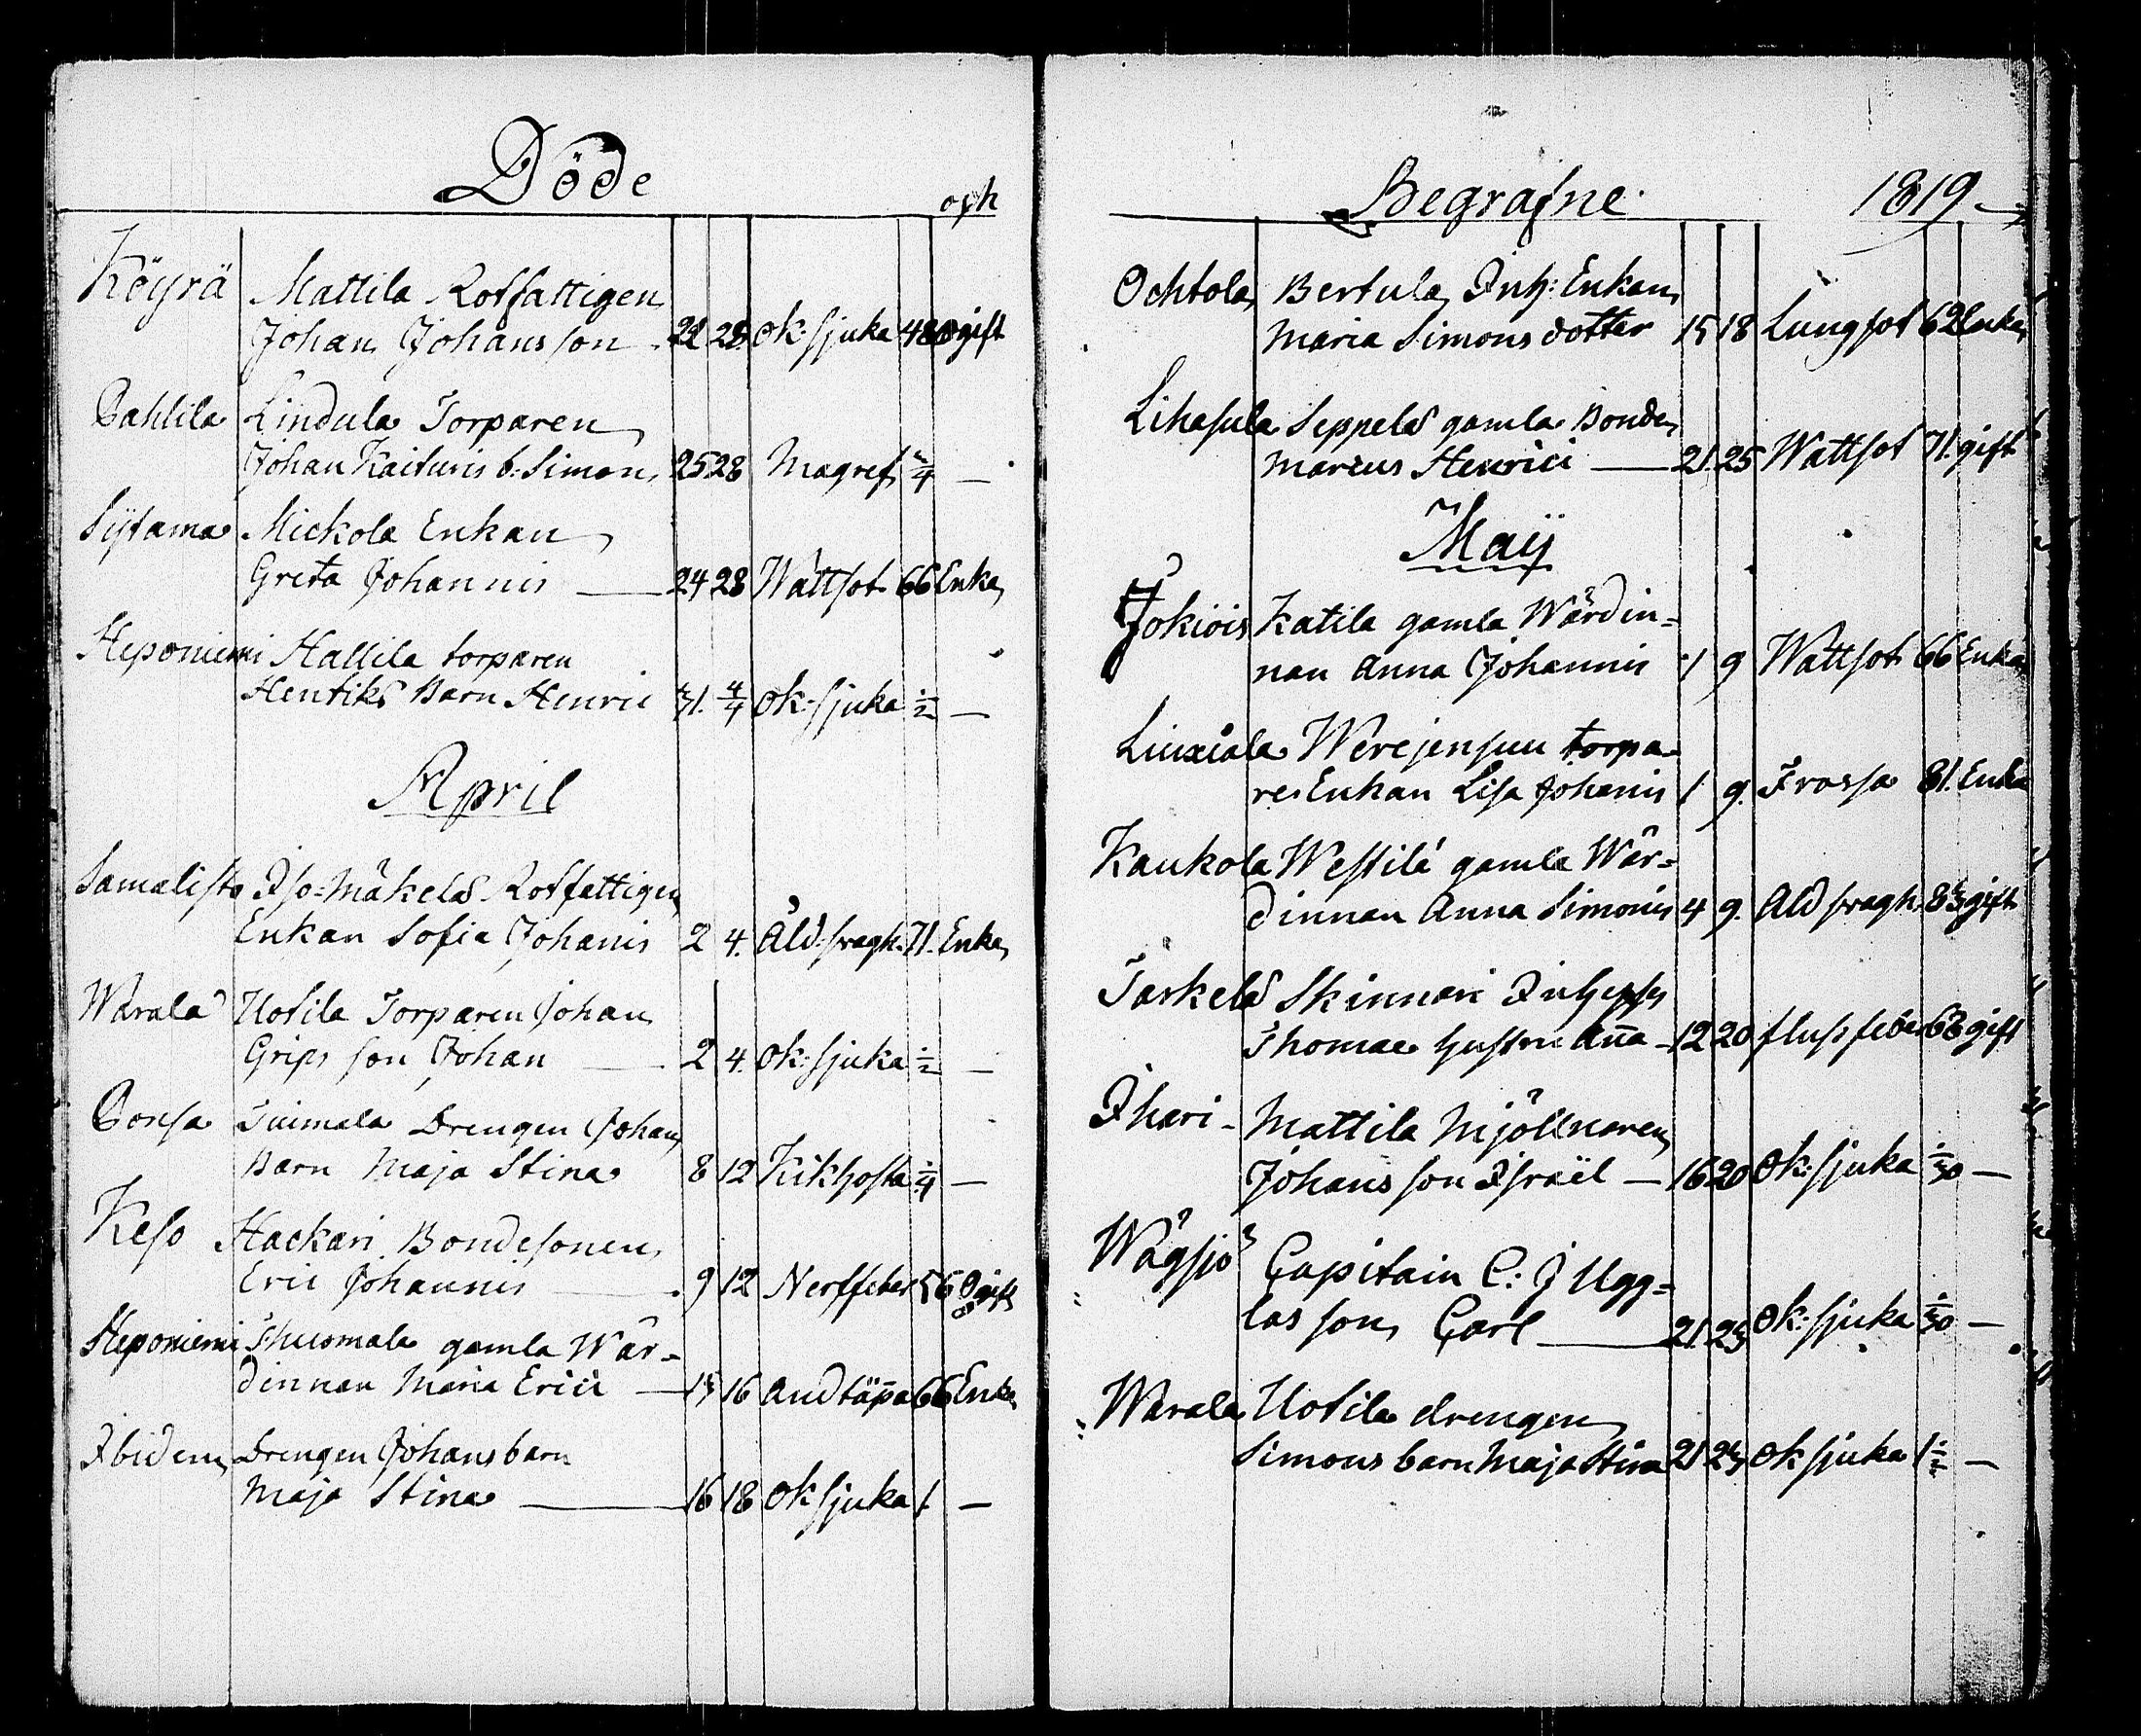 Döde och
Köyrä Mattila Rotfattigen
Johan Johansson 22 28 Ok: sjuka 48 Ogift
Dahlila Lindula Torparen
Johan Kaituris b: Simon 25 28 Magref 3/4 —
Sytama Mickola Enkan
Greta Johannis — 24 28 Wattsot 66 Enka
Heponiemi Hallila torparen
Henriks Barn Henric 31. 4/4 Ok: sjuka 1/2 —
April
Samalisto Iso=Mäkelä Rotfattigen
Enkan Sofia Johanis 2 4. Åld: svagh. 71. Enka
Warala Uotila Torparen Johan
Grips son Johan — 2 4. Ok: sjuka 1/2 —
Ponsa Tuimala Drengen Johan
Barn Maja Stina 8 12 Kikhosta 1/4 —
Keso Hackari Bondesonen
Eric Johannis — 9 12 Nerffeber 56 Ogift
Heponiemi Thusmala gamla Wär=
dinnan Maria Erici — 15 16 Andtäpa 66 Enka
Ibidem Drengen Johans barn
Maja Stina — 16 18 Ok sjuka 1. —
Begrafne 1819
Ochtola Bertula Inh: Enkan
Maria Simons dotter 15 18 Lungsot 62 Enka
Lihasula Seppelä gamla Bonde
Marcus Henrici — 21. 25 Wattsot 71. gift
Maij
Jokiois Katila gamla Wärdin=
nan Anna Johannis 1 9 Wattsot 66 Enka
Liuxiala Werejensuu torpa=
re Enkan Lisa Johanis 1 9. Frossa 81. Enka
Kaukola Westilä gamla Wär=
dinnan Anna Simonis 4 9. Åld svagh. 83 gift
Taskelä Skinnari Inhyses
Thomae hustru Aña — 12 20 flussfeber 68 gift
Ihari — Mattila Mjöllnaren
Johans son Israël — 16 20 Ok: sjuka 1/30 —
Wågsjö Capitain C: J Ugg=
las son Carl — 21. 23 Ok: sjuka 1/30 —
Warala Uotila drengen
Simons barn Maja Stina 21 23 Ok sjuka 1 1/2 —